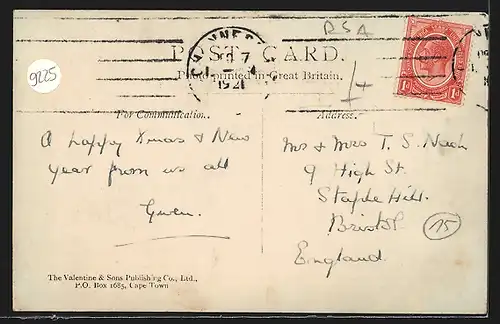 RSA
POST CARD.
Photo printed in Great Britain.
1921
9225
1d 1d
For Communication.
Address.
A happy Xmas & New
year from us all
Gwen.
Mr & Mrs T. S. Nash
9 High St.
Staple Hill.
Bristol
England
15
The Valentine & Sons Publishing Co., Ltd.,
P.O. Box 1685, Cape Town